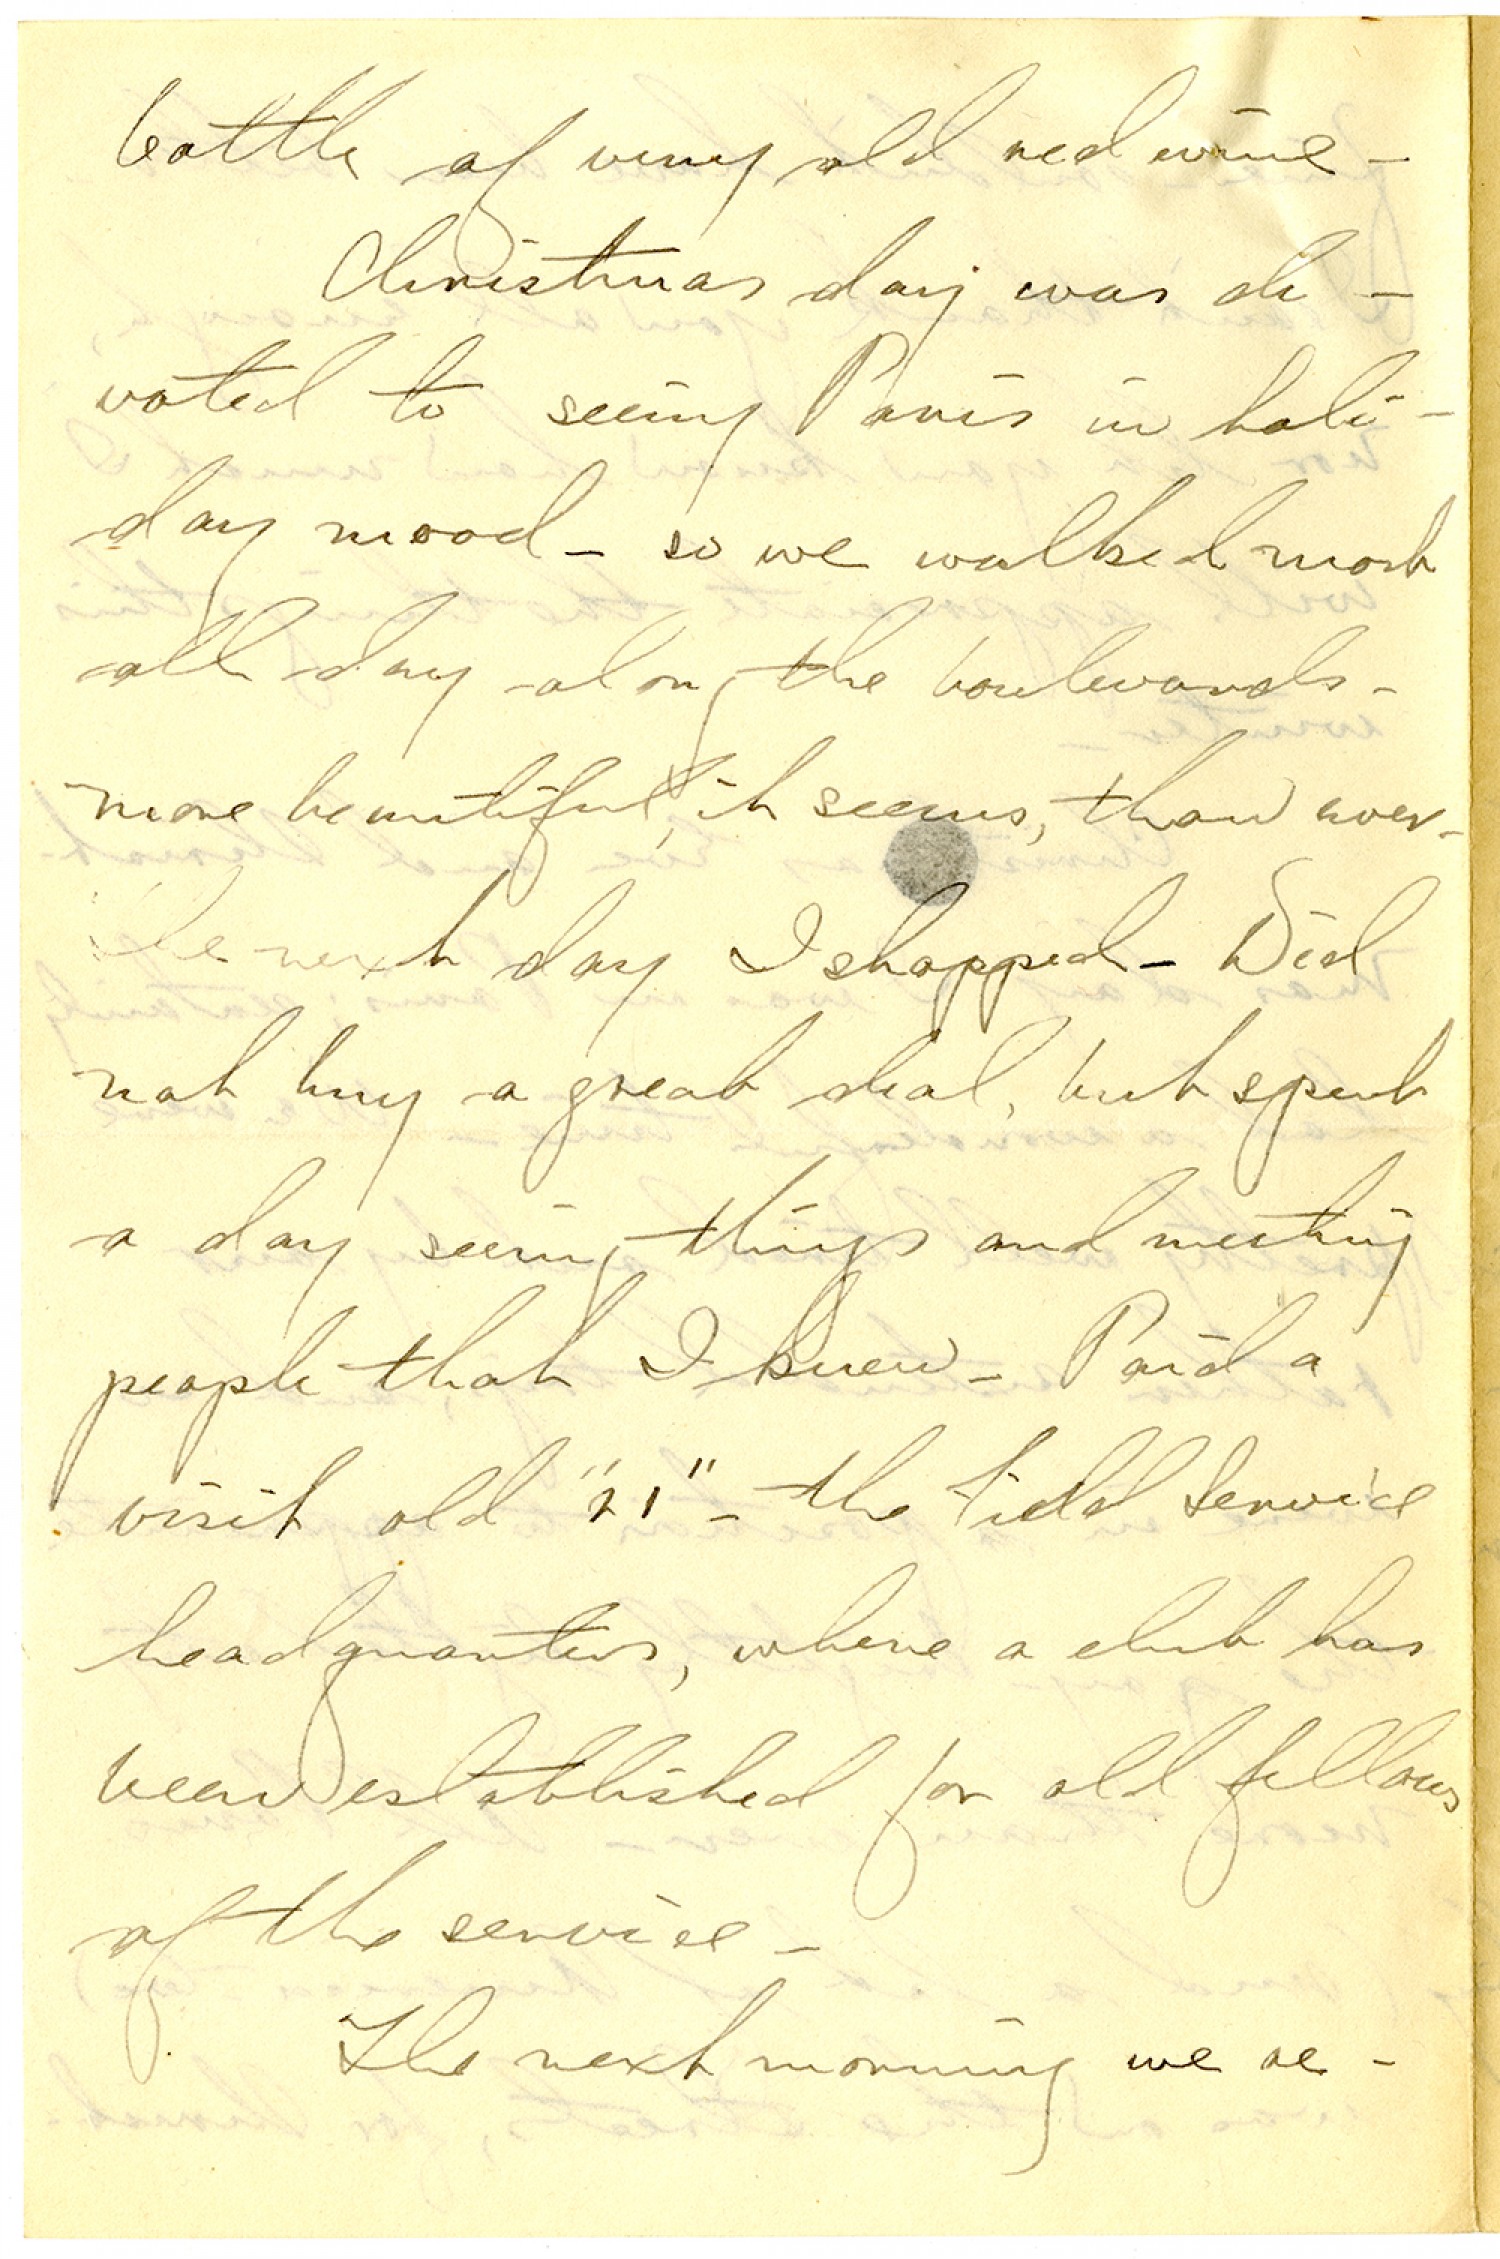 bottle of very old red wine –
Christmas day was de –
voted to seeing Paris in holi –
day mood – so we walked most
all day along the boulevards –
more beautiful, it seems, than ever –
The next day I shopped – Did
not buy a great deal, but spent
a day seeing things and meeting
people that I knew – Paid a
visit old "21" – the Field Service
headquarters, where a club has
been established for old fellows
of the service –
The next morning we re –